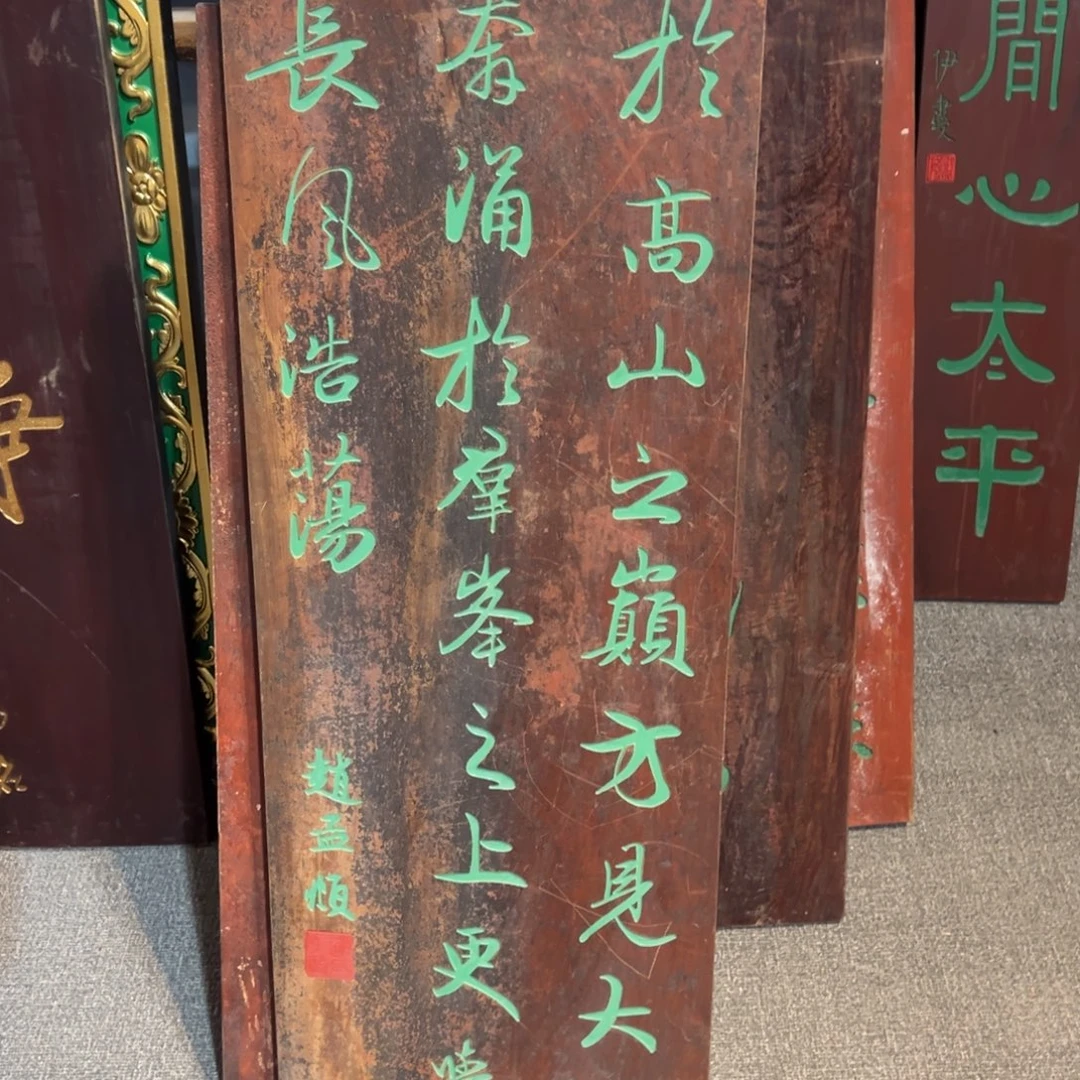 於高山之巔方見大
奔涌於羣峯之上更
長風浩蕩
趙孟頫
間心太平
伊書